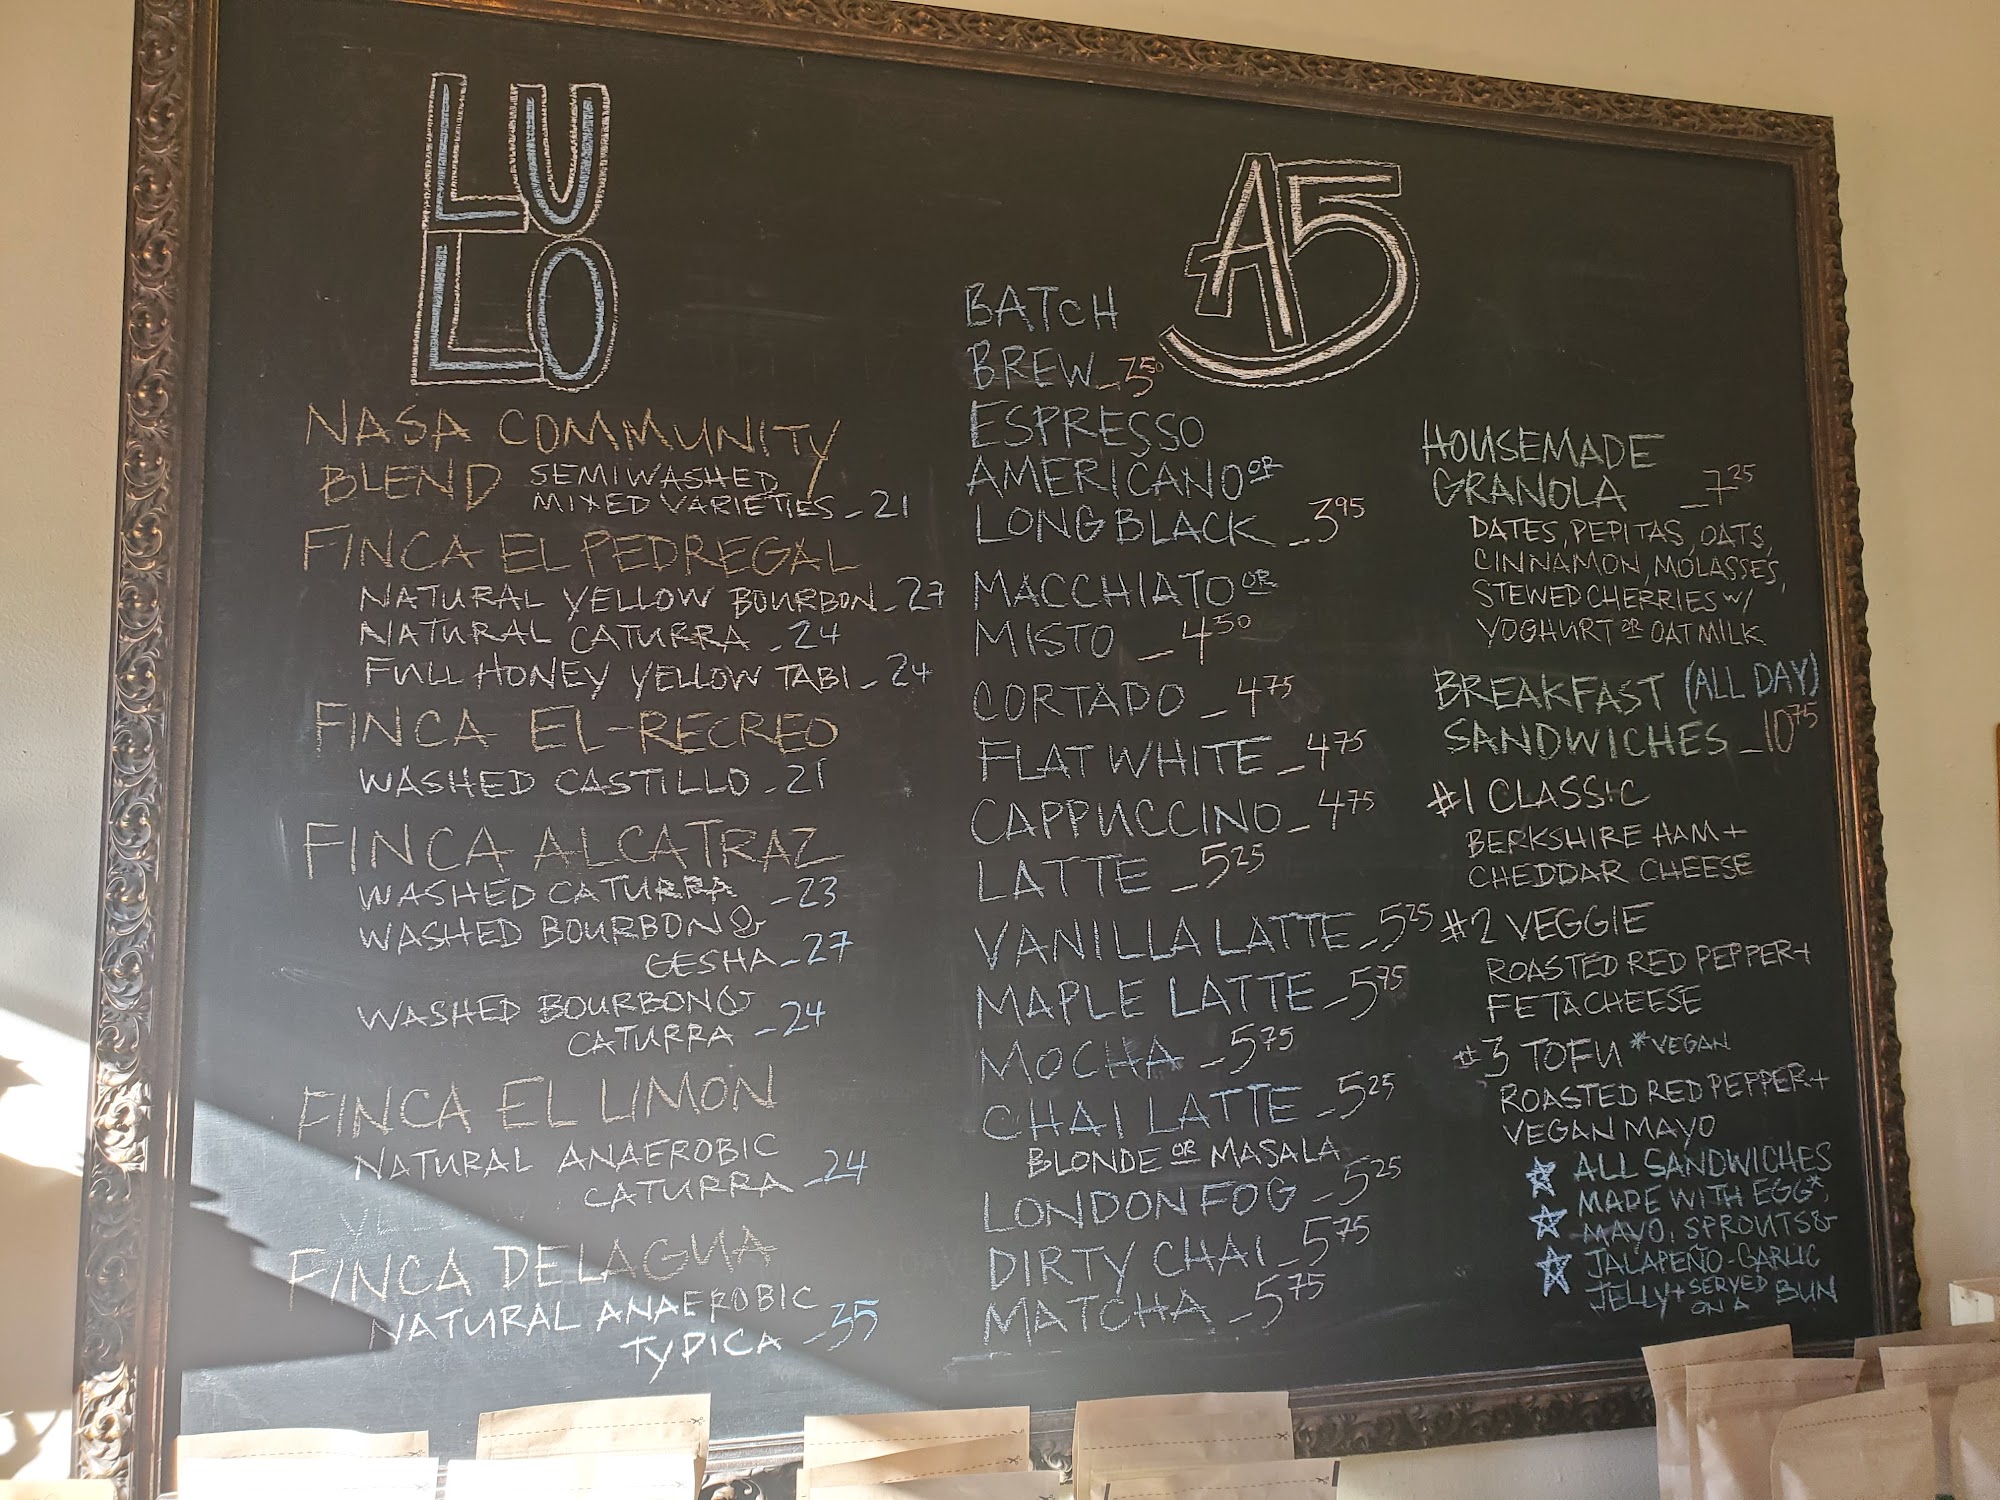 LU
LO
NASA COMMUNITY
BLEND SEMIWASHED
MIXED VARIETIES - 21
FINCA EL PEDREGAL
NATURAL YELLOW BOURBON - 27
NATURAL CATURRA - 24
FULL HONEY YELLOW TABI - 24
FINCA EL RECREO
WASHED CASTILLO - 21
FINCA ALCATRAZ
WASHED CATURRA - 23
WASHED BOURBON &
GESHA - 27
WASHED BOURBON &
CATURRA - 24
FINCA EL LIMON
NATURAL ANAEROBIC
CATURRA - 24
FINCA DEL AGUA
NATURAL ANAEROBIC
TYPICA - 35
A5
BATCH
BREW - 3.50
ESPRESSO
AMERICANO OR
LONG BLACK - 3 95
MACCHIATO OR
MISTO - 4 50
CORTADO - 4 75
FLAT WHITE - 4 75
CAPPUCCINO - 4 75
LATTE - 5 25
VANILLA LATTE - 5 25
MAPLE LATTE - 5 75
MOCHA - 5 75
CHAI LATTE - 5 25
BLONDE OR MASALA
LONDON FOG - 5 25
DIRTY CHAI - 5 75
MATCHA - 5 75
HOUSEMADE
GRANOLA - 7 25
DATES, PEPITAS, OATS,
CINNAMON, MOLASSES,
STEWED CHERRIES W/
YOGHURT OR OAT MILK
BREAKFAST (ALL DAY)
SANDWICHES - 10 75
#1 CLASSIC
BERKSHIRE HAM +
CHEDDAR CHEESE
#2 VEGGIE
ROASTED RED PEPPER +
FETA CHEESE
#3 TOFU *VEGAN
ROASTED RED PEPPER +
VEGAN MAYO
ALL SANDWICHES
MADE WITH EGG*,
MAYO, SPROUTS &
JALAPEÑO-GARLIC
JELLY + SERVED
ON A BUN